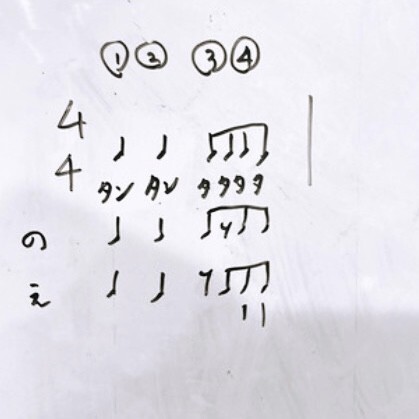 ① ② ③ ④
4
4
タン タン タタタタ
の
え